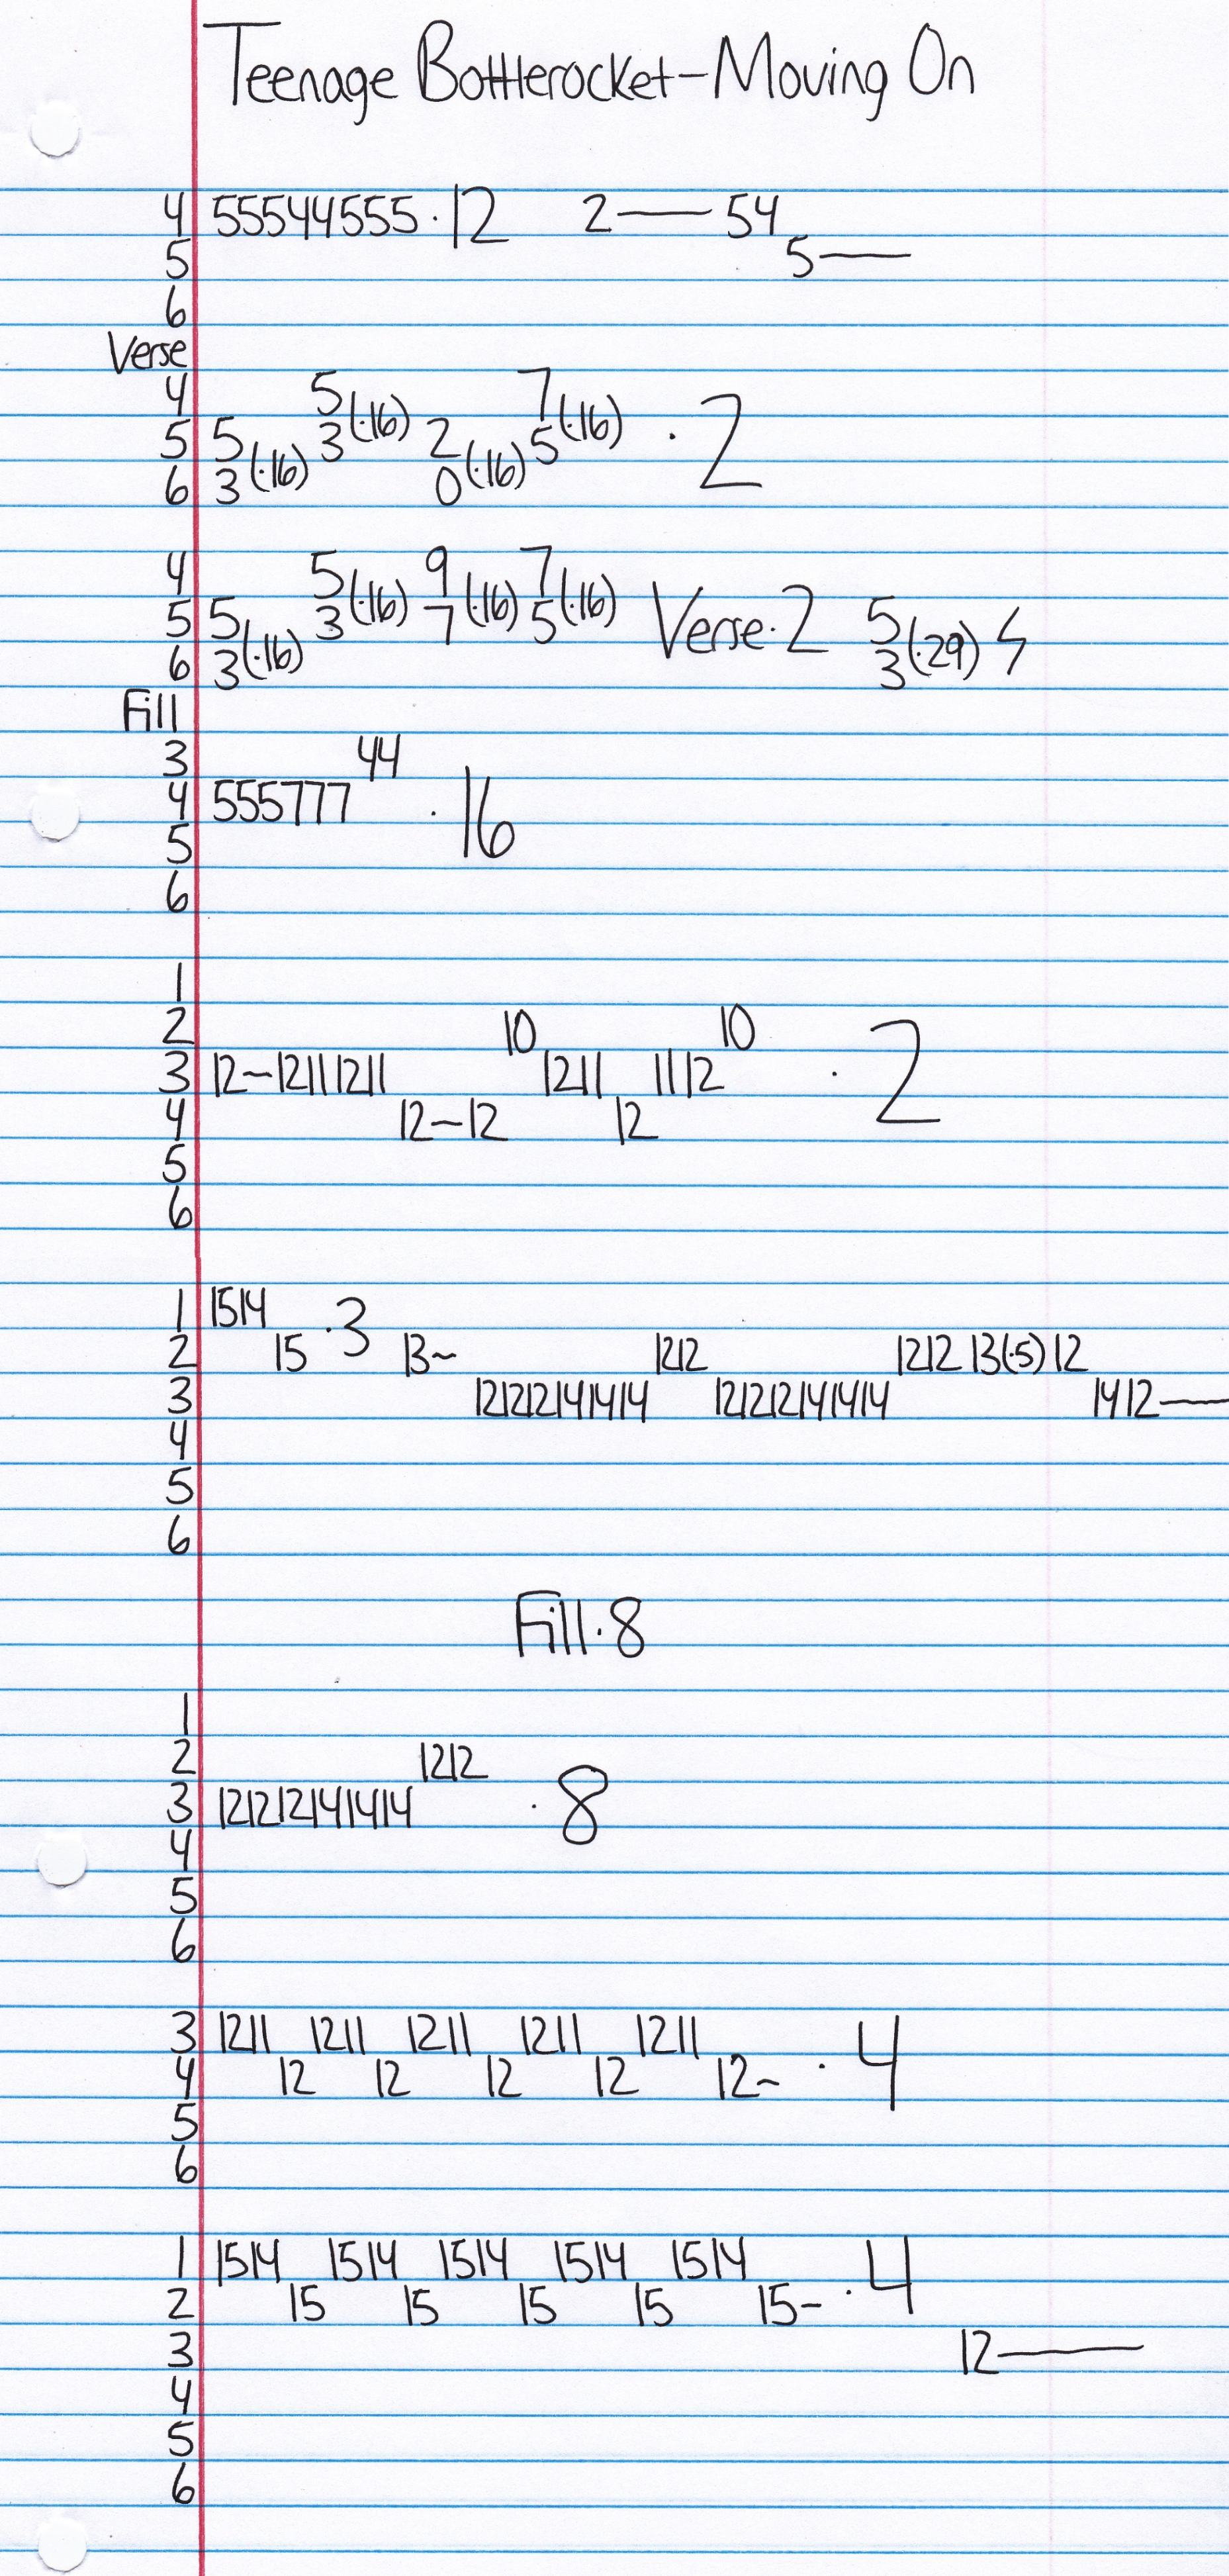 Teenage Bottlerocket-Moving On
4 55544555·12 2—54
5 5—
6
Verse
4 5 7
5 5 3(·16) 2 5(·16) ·2
6 3(·16) 0(·16)
4 5 9 7
5 5 3(·16) 7(·16) 5(·16) Verse·2 5
6 3(·16) 3(·29)
Fill
3 44
4 555777 ·16
5
6
1
2 10 10
3 12~12111211 1211 1112 ·2
4 12~12 12
5
6
1 1514
2 15 ·3 13~ 1212 1212 13(·5) 12
3 121212141414 121212141414 1412—
4
5
6
Fill·8
1
2 1212
3 121212141414 ·8
4
5
6
3 1211 1211 1211 1211 1211
4 12 12 12 12 12~ ·4
5
6
1 1514 1514 1514 1514 1514
2 15 15 15 15 15~ ·4
3 12—
4
5
6